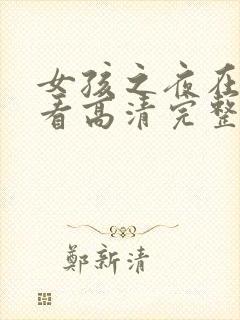 女孩之夜在
看高清完整
鄭新清